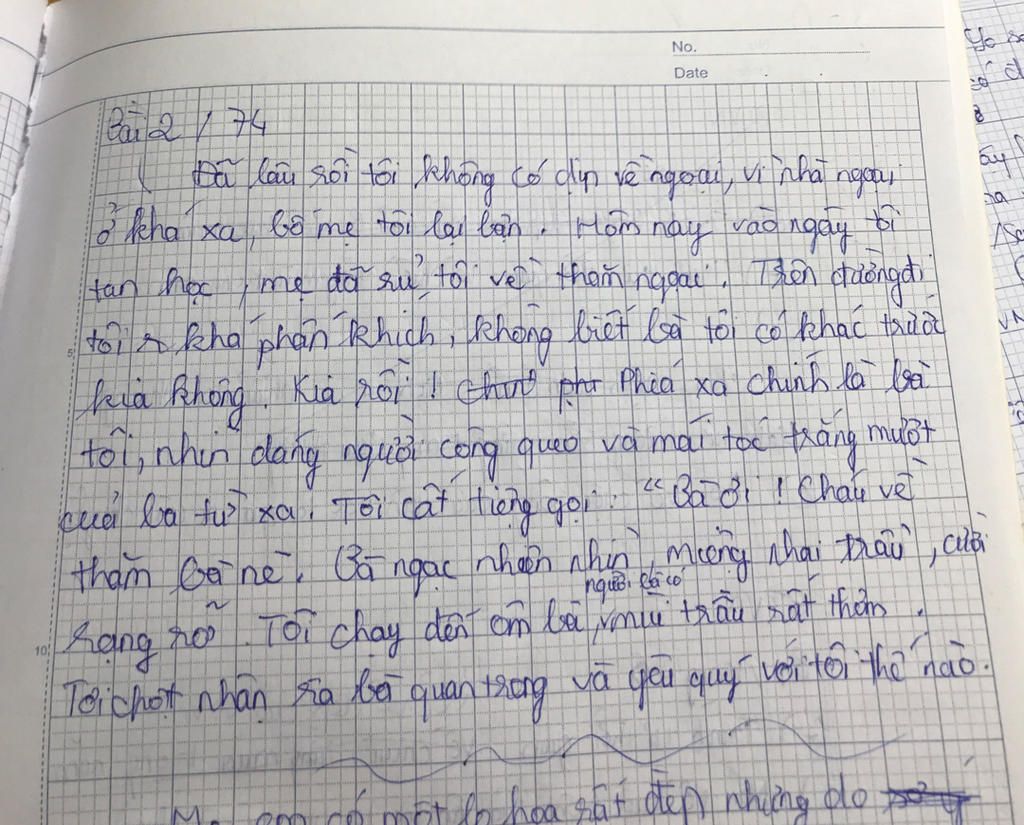 No.
Date
Bài 2 / 74
Đã lâu rồi tôi không có dịp về ngoại, vì nhà ngoại
ở khá xa, bố mẹ tôi lại bận. Hôm nay vào ngày tôi
tan học, mẹ đã rủ tôi về thăm ngoại. Trên đường đi
5 tôi khá phấn khích, không biết bà tôi có khác trước
kia không. Kia rồi! Phía xa chính là bà
tôi, nhìn dáng người còng queo và mái tóc trắng mướt
của bà từ xa. Tôi cất tiếng gọi: "Bà ơi! Cháu về
thăm bà nè. Bà ngạc nhiên nhìn, miệng nhai trầu, cười
người bà có
rạng rỡ. Tôi chạy đến ôm bà, mùi trầu rất thơm.
10 Tôi chợt nhận ra bà quan trọng và yêu quý với tôi thế nào.
có một lọ hoa rất đẹp nhưng do